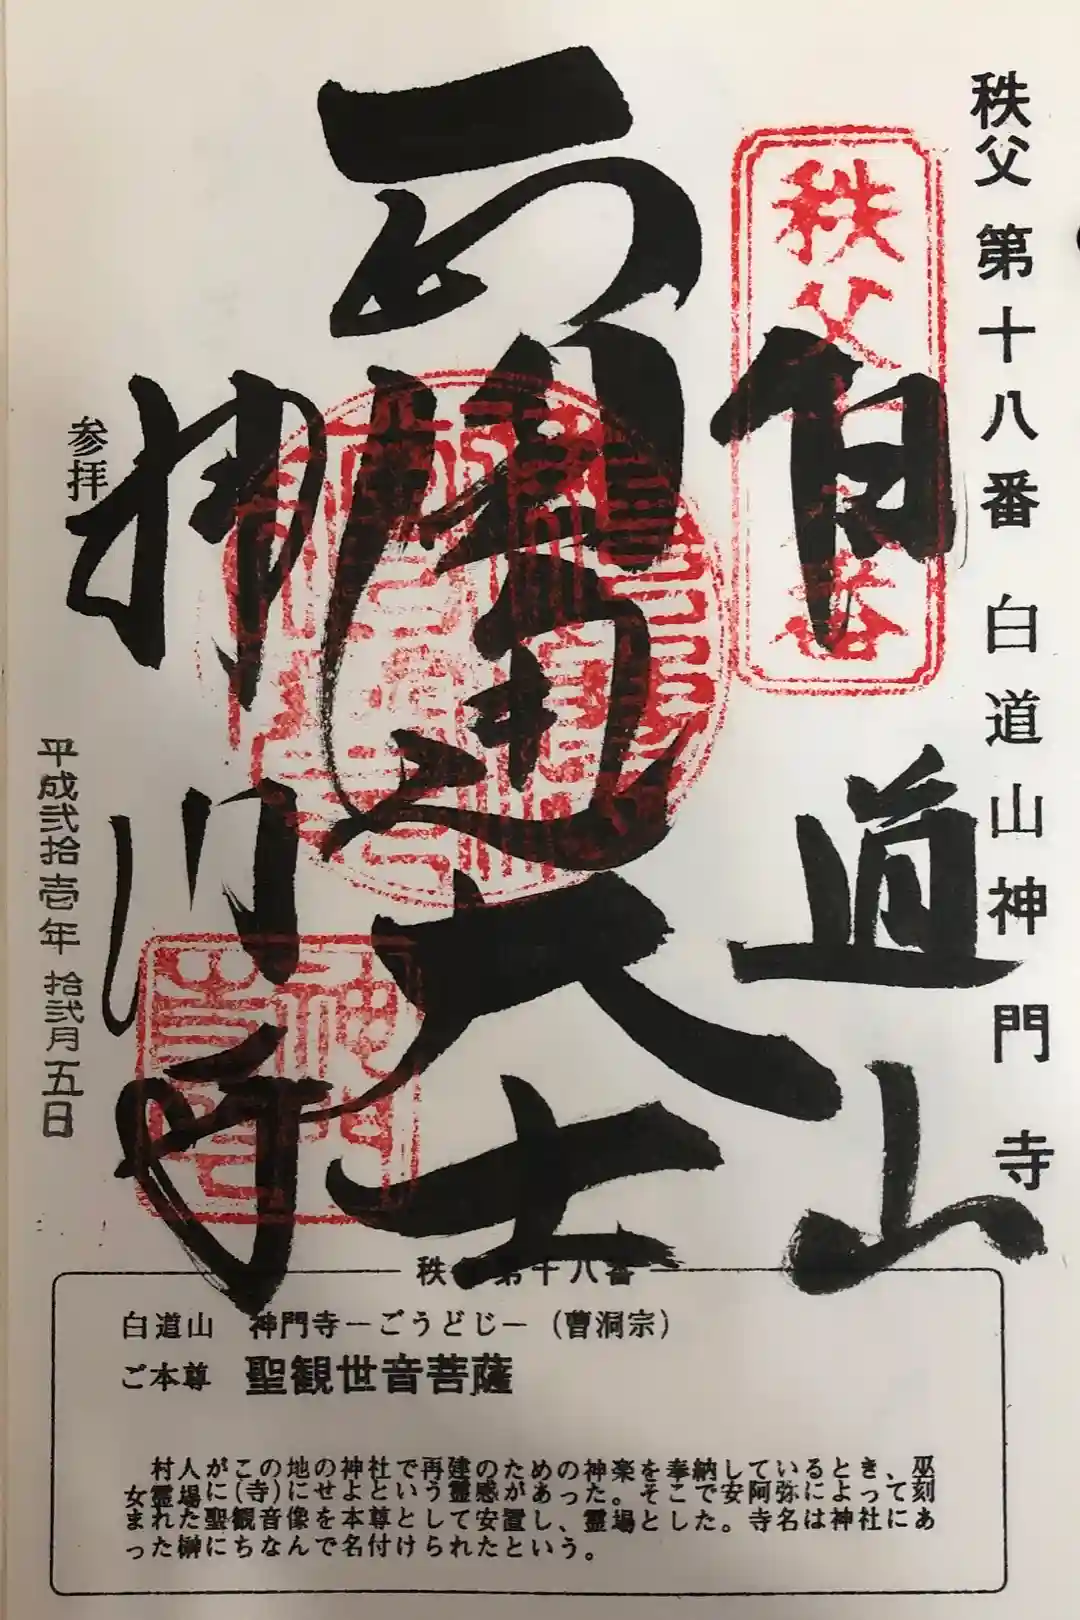 秩父第十八番 白道山神門寺
秩父
番
白道山
大士
神門寺
参拝
平成弐拾壱年 拾弐月五日
秩 第十八番
白道山 神門寺－ごうどじ－（曹洞宗）
ご本尊 聖観世音菩薩
村人がこの地の神社で再建のための神楽を奉納しているとき、巫
女霊場に(寺)にせよという霊感があった。そこで安阿弥によって刻
まれた聖観音像を本尊として安置し、霊場とした。寺名は神社にあ
った榊にちなんで名付けられたという。